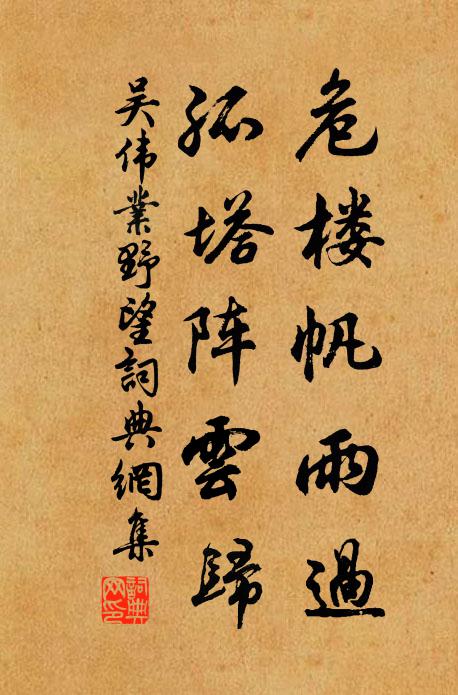 危楼帆雨過
孤塔阵雲歸
吴伟業野望詞典網集
詞典网印